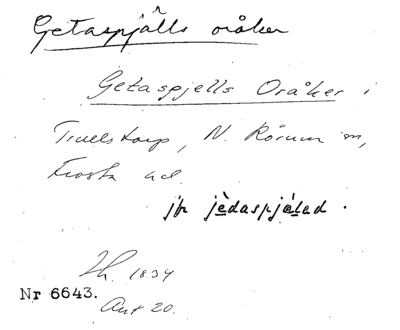 Getaspjälls oråker
Getaspjells Oråker i
Truelstorp, N. Rörum sn,
Frosta hd.
jfr jèdaspjäled.
Th. 1834
Nr 6643.
Ant 20.